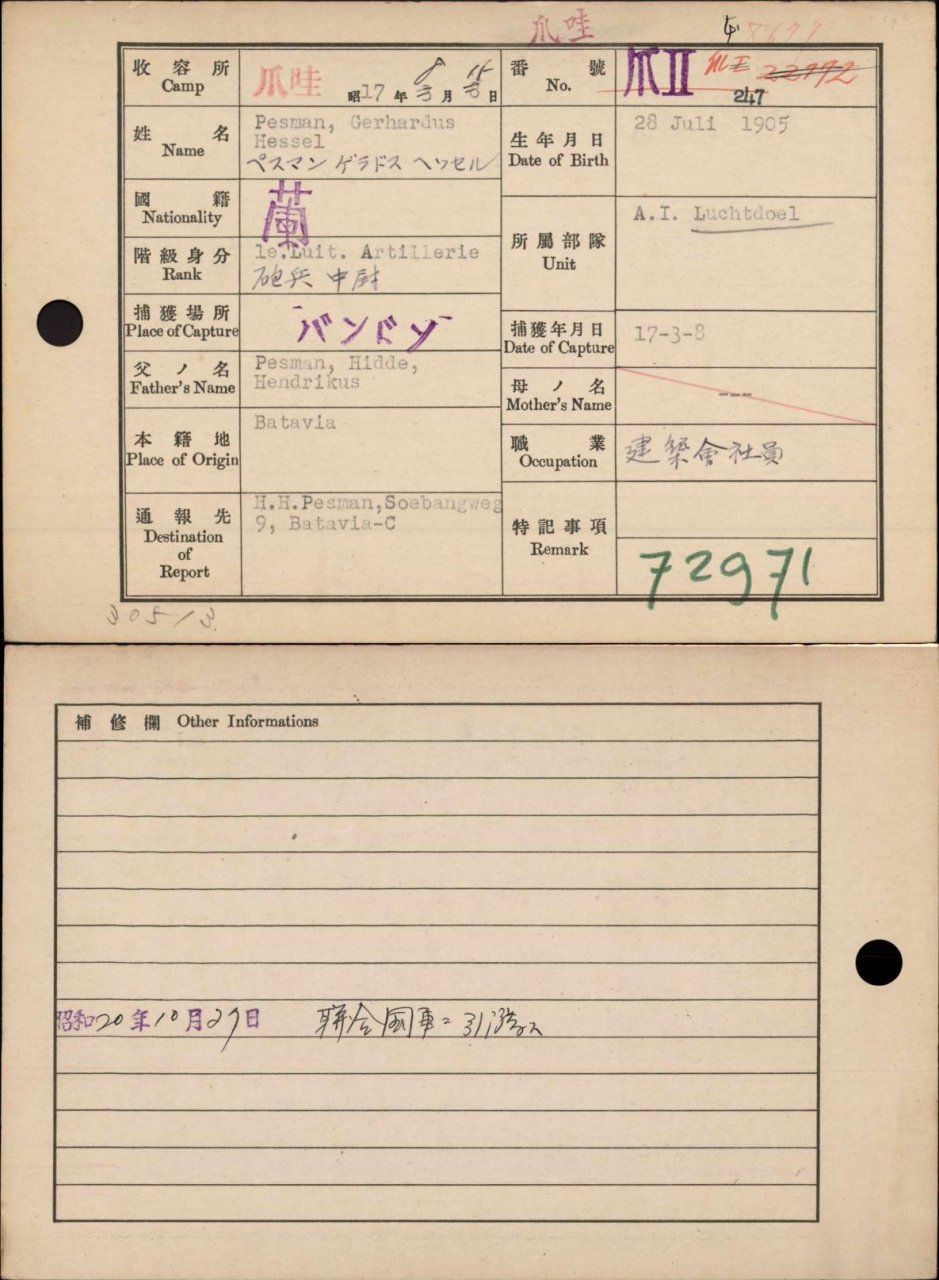 爪哇
8677
收容所
Camp
爪哇
昭17年 8月15日
番號
No.
爪II
22992
247
姓名
Name
Pesman, Gerhardus
Hessel
ペスマン ゲラドス ヘツセル
生年月日
Date of Birth
28 Juli 1905
國籍
Nationality
蘭
階級身分
Rank
1e.Luit. Artillerie
砲兵 中尉
所屬部隊
Unit
A.I. Luchtdoel
捕獲場所
Place of Capture
バンドン
捕獲年月日
Date of Capture
17-3-8
父ノ名
Father's Name
Pesman, Hidde,
Hendrikus
母ノ名
Mother's Name
---
本籍地
Place of Origin
Batavia
職業
Occupation
建築會社員
通報先
Destination
of
Report
H.H.Pesman,Soebangweg
9, Batavia-C
特記事項
Remark
72971
305/3
補修欄 Other Informations
昭和20年10月27日 聯合國軍ニ引渡ス